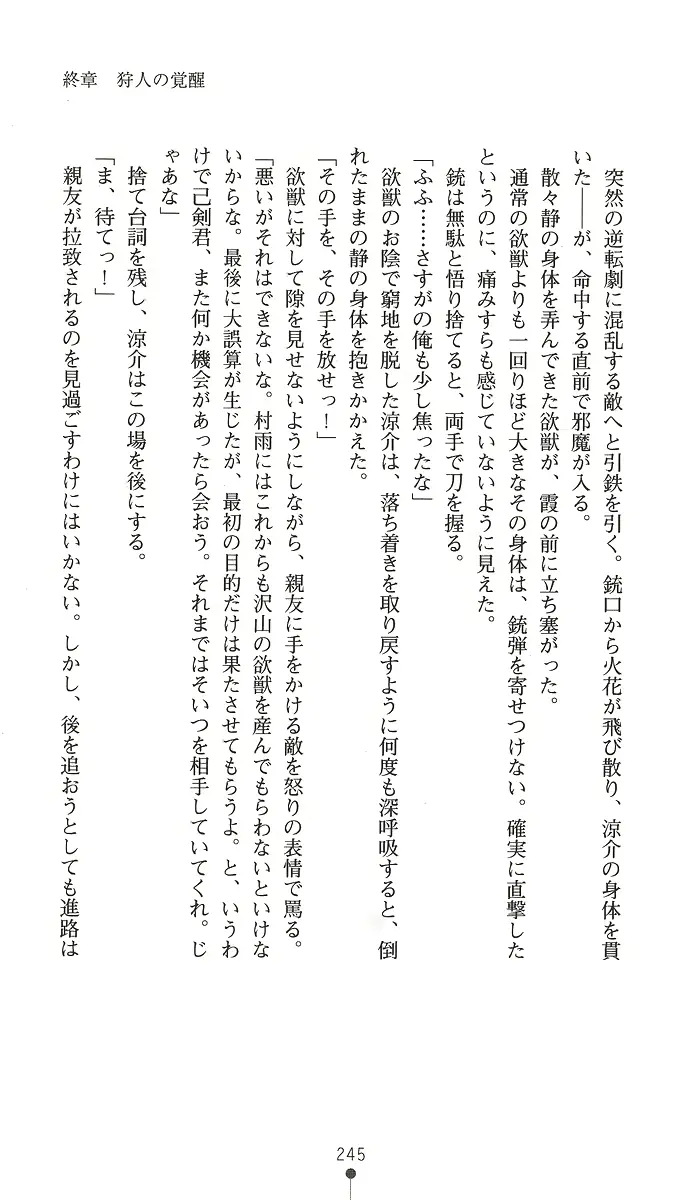 終章　狩人の覚醒
　突然の逆転劇に混乱する敵へと引鉄を引く。銃口から火花が飛び散り、涼介の身体を貫
いた――が、命中する直前で邪魔が入る。
　散々静の身体を弄んできた欲獣が、霞の前に立ち塞がった。
　通常の欲獣よりも一回りほど大きなその身体は、銃弾を寄せつけない。確実に直撃した
というのに、痛みすらも感じていないように見えた。
　銃は無駄と悟り捨てると、両手で刀を握る。
「ふふ……さすがの俺も少し焦ったな」
　欲獣のお陰で窮地を脱した涼介は、落ち着きを取り戻すように何度も深呼吸すると、倒
れたままの静の身体を抱きかかえた。
「その手を、その手を放せっ！」
　欲獣に対して隙を見せないようにしながら、親友に手をかける敵を怒りの表情で罵る。
「悪いがそれはできないな。村雨にはこれからも沢山の欲獣を産んでもらわないといけな
いからな。最後に大誤算が生じたが、最初の目的だけは果たさせてもらうよ。と、いうわ
けで己剣君、また何か機会があったら会おう。それまではそいつを相手していてくれ。じ
ゃあな」
　捨て台詞を残し、涼介はこの場を後にする。
「ま、待てっ！」
　親友が拉致されるのを見過ごすわけにはいかない。しかし、後を追おうとしても進路は
245